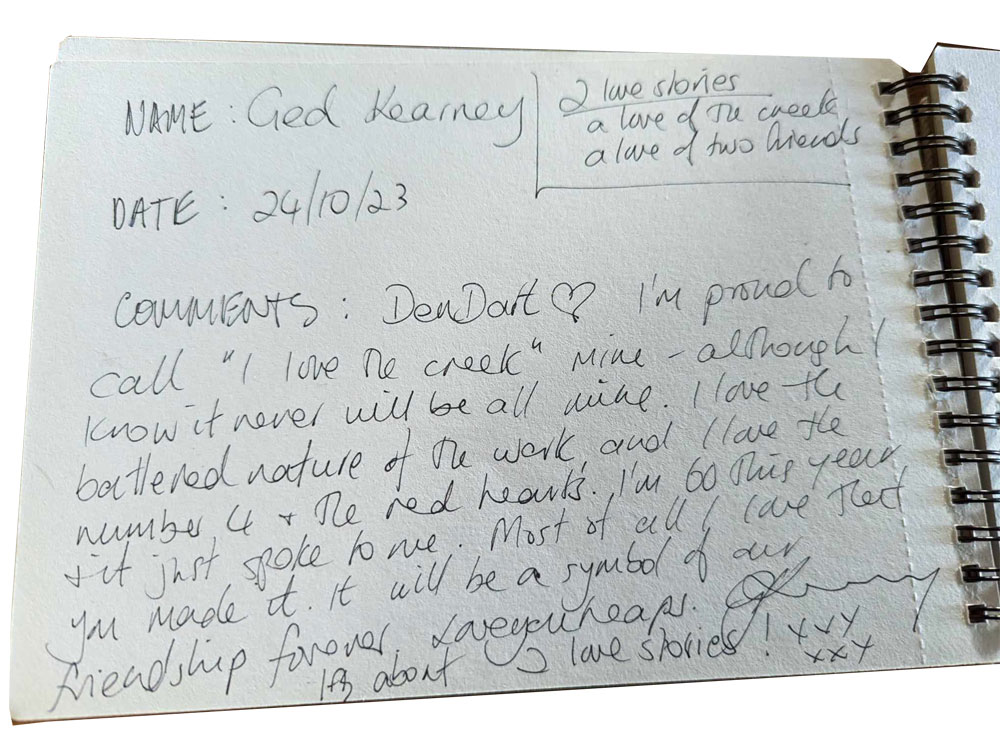 NAME: Ged Kearney
2 love stories
a love of the creek
a love of two friends
DATE: 24/10/23
COMMENTS: DenDart ♡ I'm proud to
call "I love the creek" mine - although I
know it never will be all mine. I love the
battered nature of the work, and I love the
number 4 + the red hearts. I'm 60 this year,
+ it just spoke to me. Most of all I love that
you made it. It will be a symbol of our
friendship forever. Loveyouheaps.
Its about 2 love stories! xxx
xxx